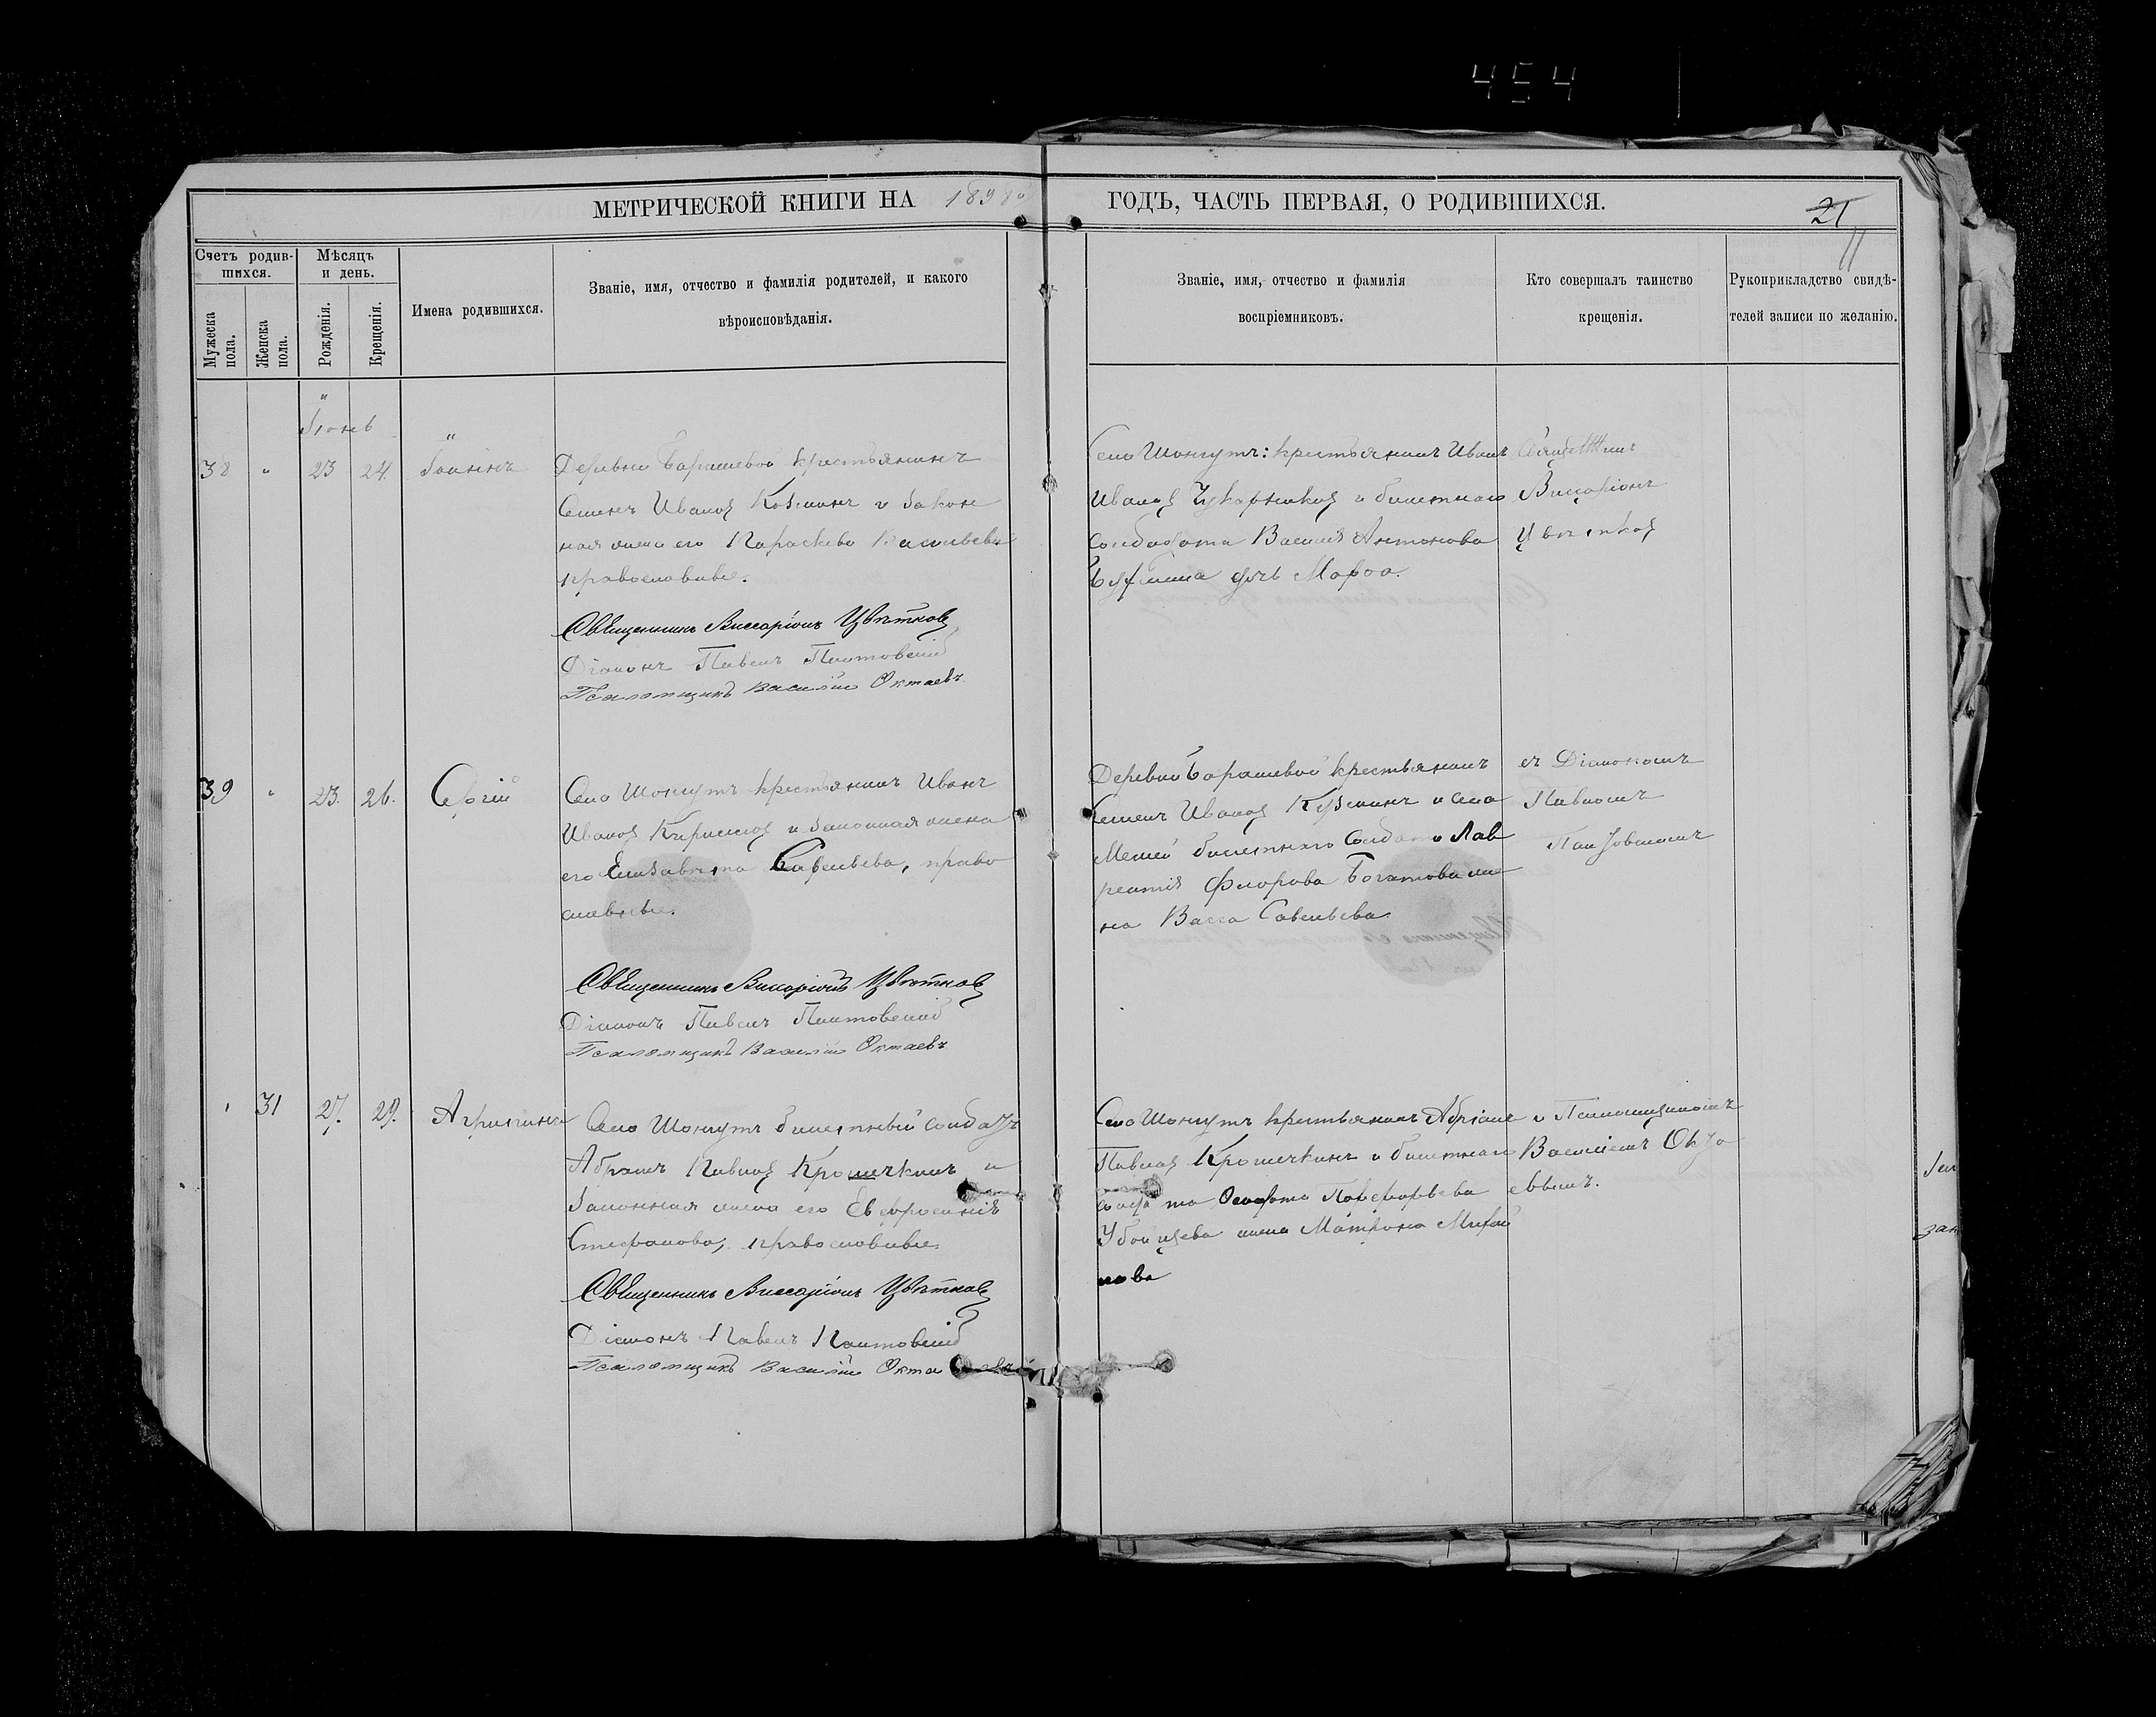 454
МЕТРИЧЕСКОЙ КНИГИ НА 1898
ГОДЪ, ЧАСТЬ ПЕРВАЯ, О РОДИВШИХСЯ.
21
11
Счетъ родив-
шихся.
Мужеска
пола.
Женска
пола.
Мѣсяцъ
и день.
Рожденія.
Крещенія.
Имена родившихся.
Званіе, имя, отчество и фамилія родителей, и какого
вѣроисповѣданія.
Званіе, имя, отчество и фамилія
воспріемниковъ.
Кто совершалъ таинство
крещенія.
Рукоприкладство свидѣ-
телей записи по желанію.
Іюнь
38 " 23 24. Іоаннъ
Деревни Барашевой крестьянинъ
Семенъ Ивановъ Козминъ и закон
ная жена его Параскева Васильева
православные.
Священникъ Виссаріонъ Цвѣтковъ
Діаконъ Павелъ
Псаломщикъ Василій Октаевъ
Село Шонгутъ: крестьянинъ Иванъ
Ивановъ и билетнаго
солдата Василія Антонова
дочь Марфа.
Священникъ
Виссаріонъ
Цвѣтковъ
39 " 23. 26. Сергій
Село Шонгутъ крестьянинъ Иванъ
Ивановъ Кириловъ и законная жена
его Елизавета Савельева, право
славные.
Священникъ Виссаріонъ Цвѣтковъ
Діаконъ Павелъ
Псаломщикъ Василій Октаевъ
Деревни Барашевой крестьянинъ
Семенъ Ивановъ Кузминъ и
билетнаго солдата Лав
рентія Флорова Богатова же
на Васса Савельева.
съ Діакономъ
Павломъ
" 31 27. 29. Агрипина
Село Шонгутъ билетный солдатъ
Абрамъ Павловъ Крошечкинъ и
законная жена его Евфросинія
Стефанова, православные.
Священникъ Виссаріонъ Цвѣтковъ
Діаконъ Павелъ
Псаломщикъ Василій Октаевъ
Село Шонгутъ крестьянинъ Адріанъ
Павловъ Крошечкинъ и билетнаго
солдата
жена Матрона Михай
лова
и Псаломщикомъ
Василіемъ Окта
евымъ.